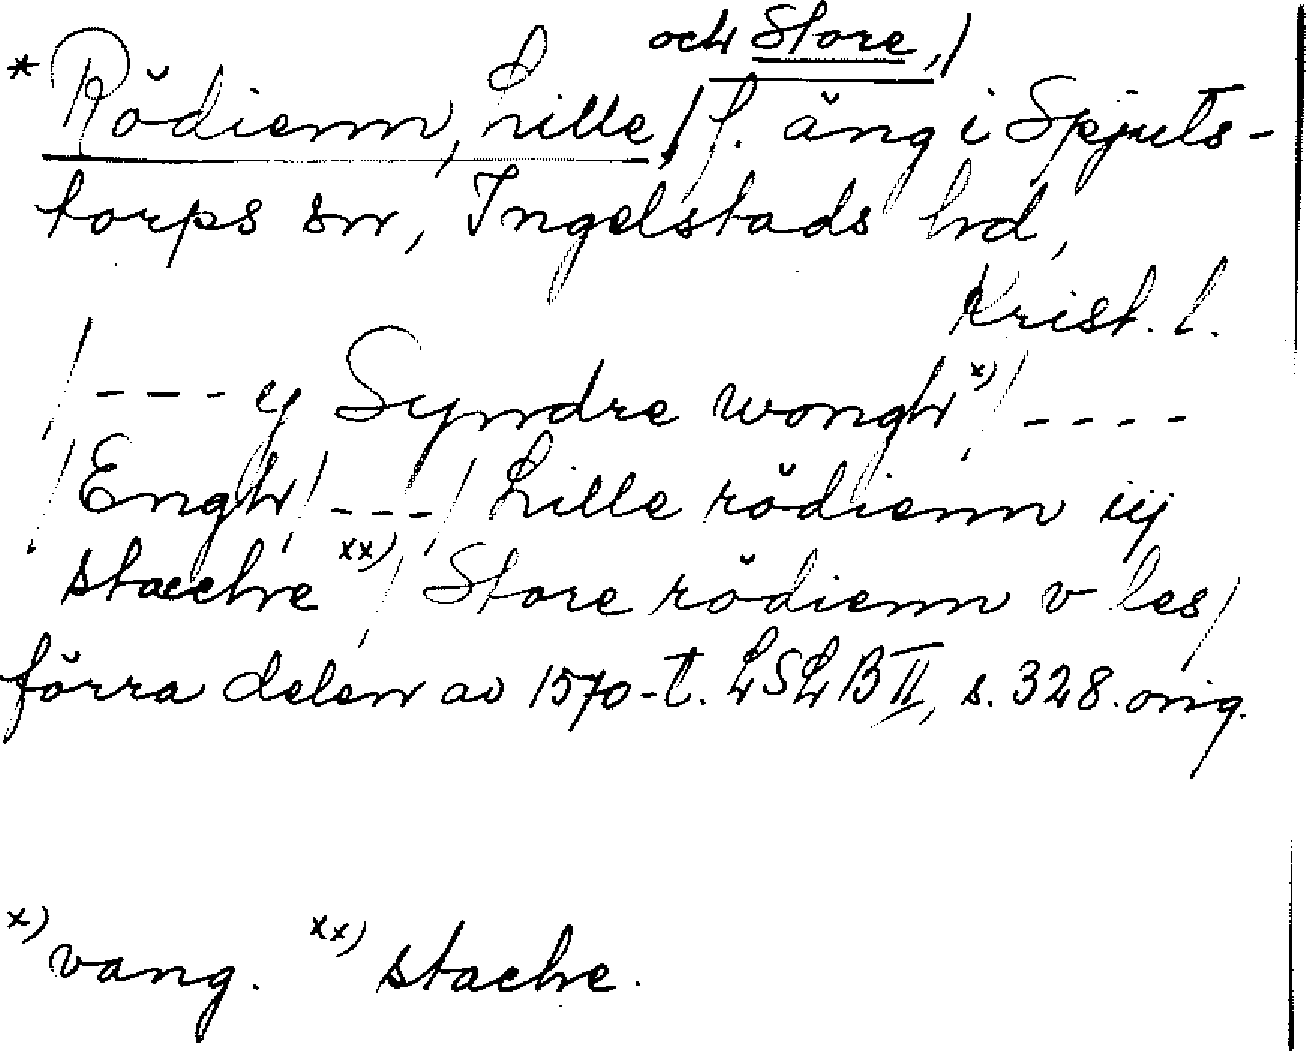 och Store,/
* Rödienn, Lille,/ f. äng i Spjuts-
torps sn, Ingelstads hd,
Krist. l.
/---- y Syndre wongh x) / ----
/Engh/ --- / Lille rödienn iij
stacche xx) / Store rödienn v les/
förra delen av 1570-t. LSLB II, s. 328. orig.
x) vang. xx) stache.